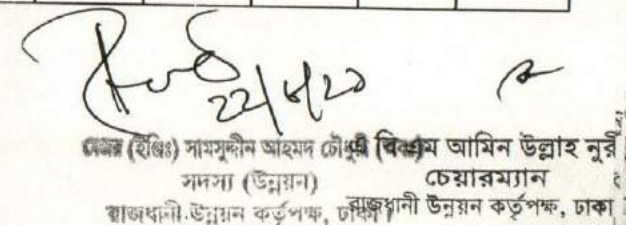 22/6/20
মেজর (ইঞ্জিঃ) সামসুদ্দীন আহমদ চৌধুরী
সদস্য (উন্নয়ন)
রাজধানী উন্নয়ন কর্তৃপক্ষ, ঢাকা।
এ বি এম আমিন উল্লাহ নুরী
চেয়ারম্যান
রাজধানী উন্নয়ন কর্তৃপক্ষ, ঢাকা